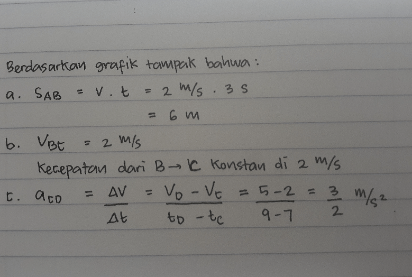 Berdasarkan grafik tampak bahwa :
a. SAB = V . t = 2 m/s . 3 s
= 6 m
b. VBC = 2 m/s
Kecepatan dari B → C konstan di 2 m/s
c. aCD = ΔV/Δt = VD - VC/tD - tC = 5-2/9-7 = 3/2 m/s²